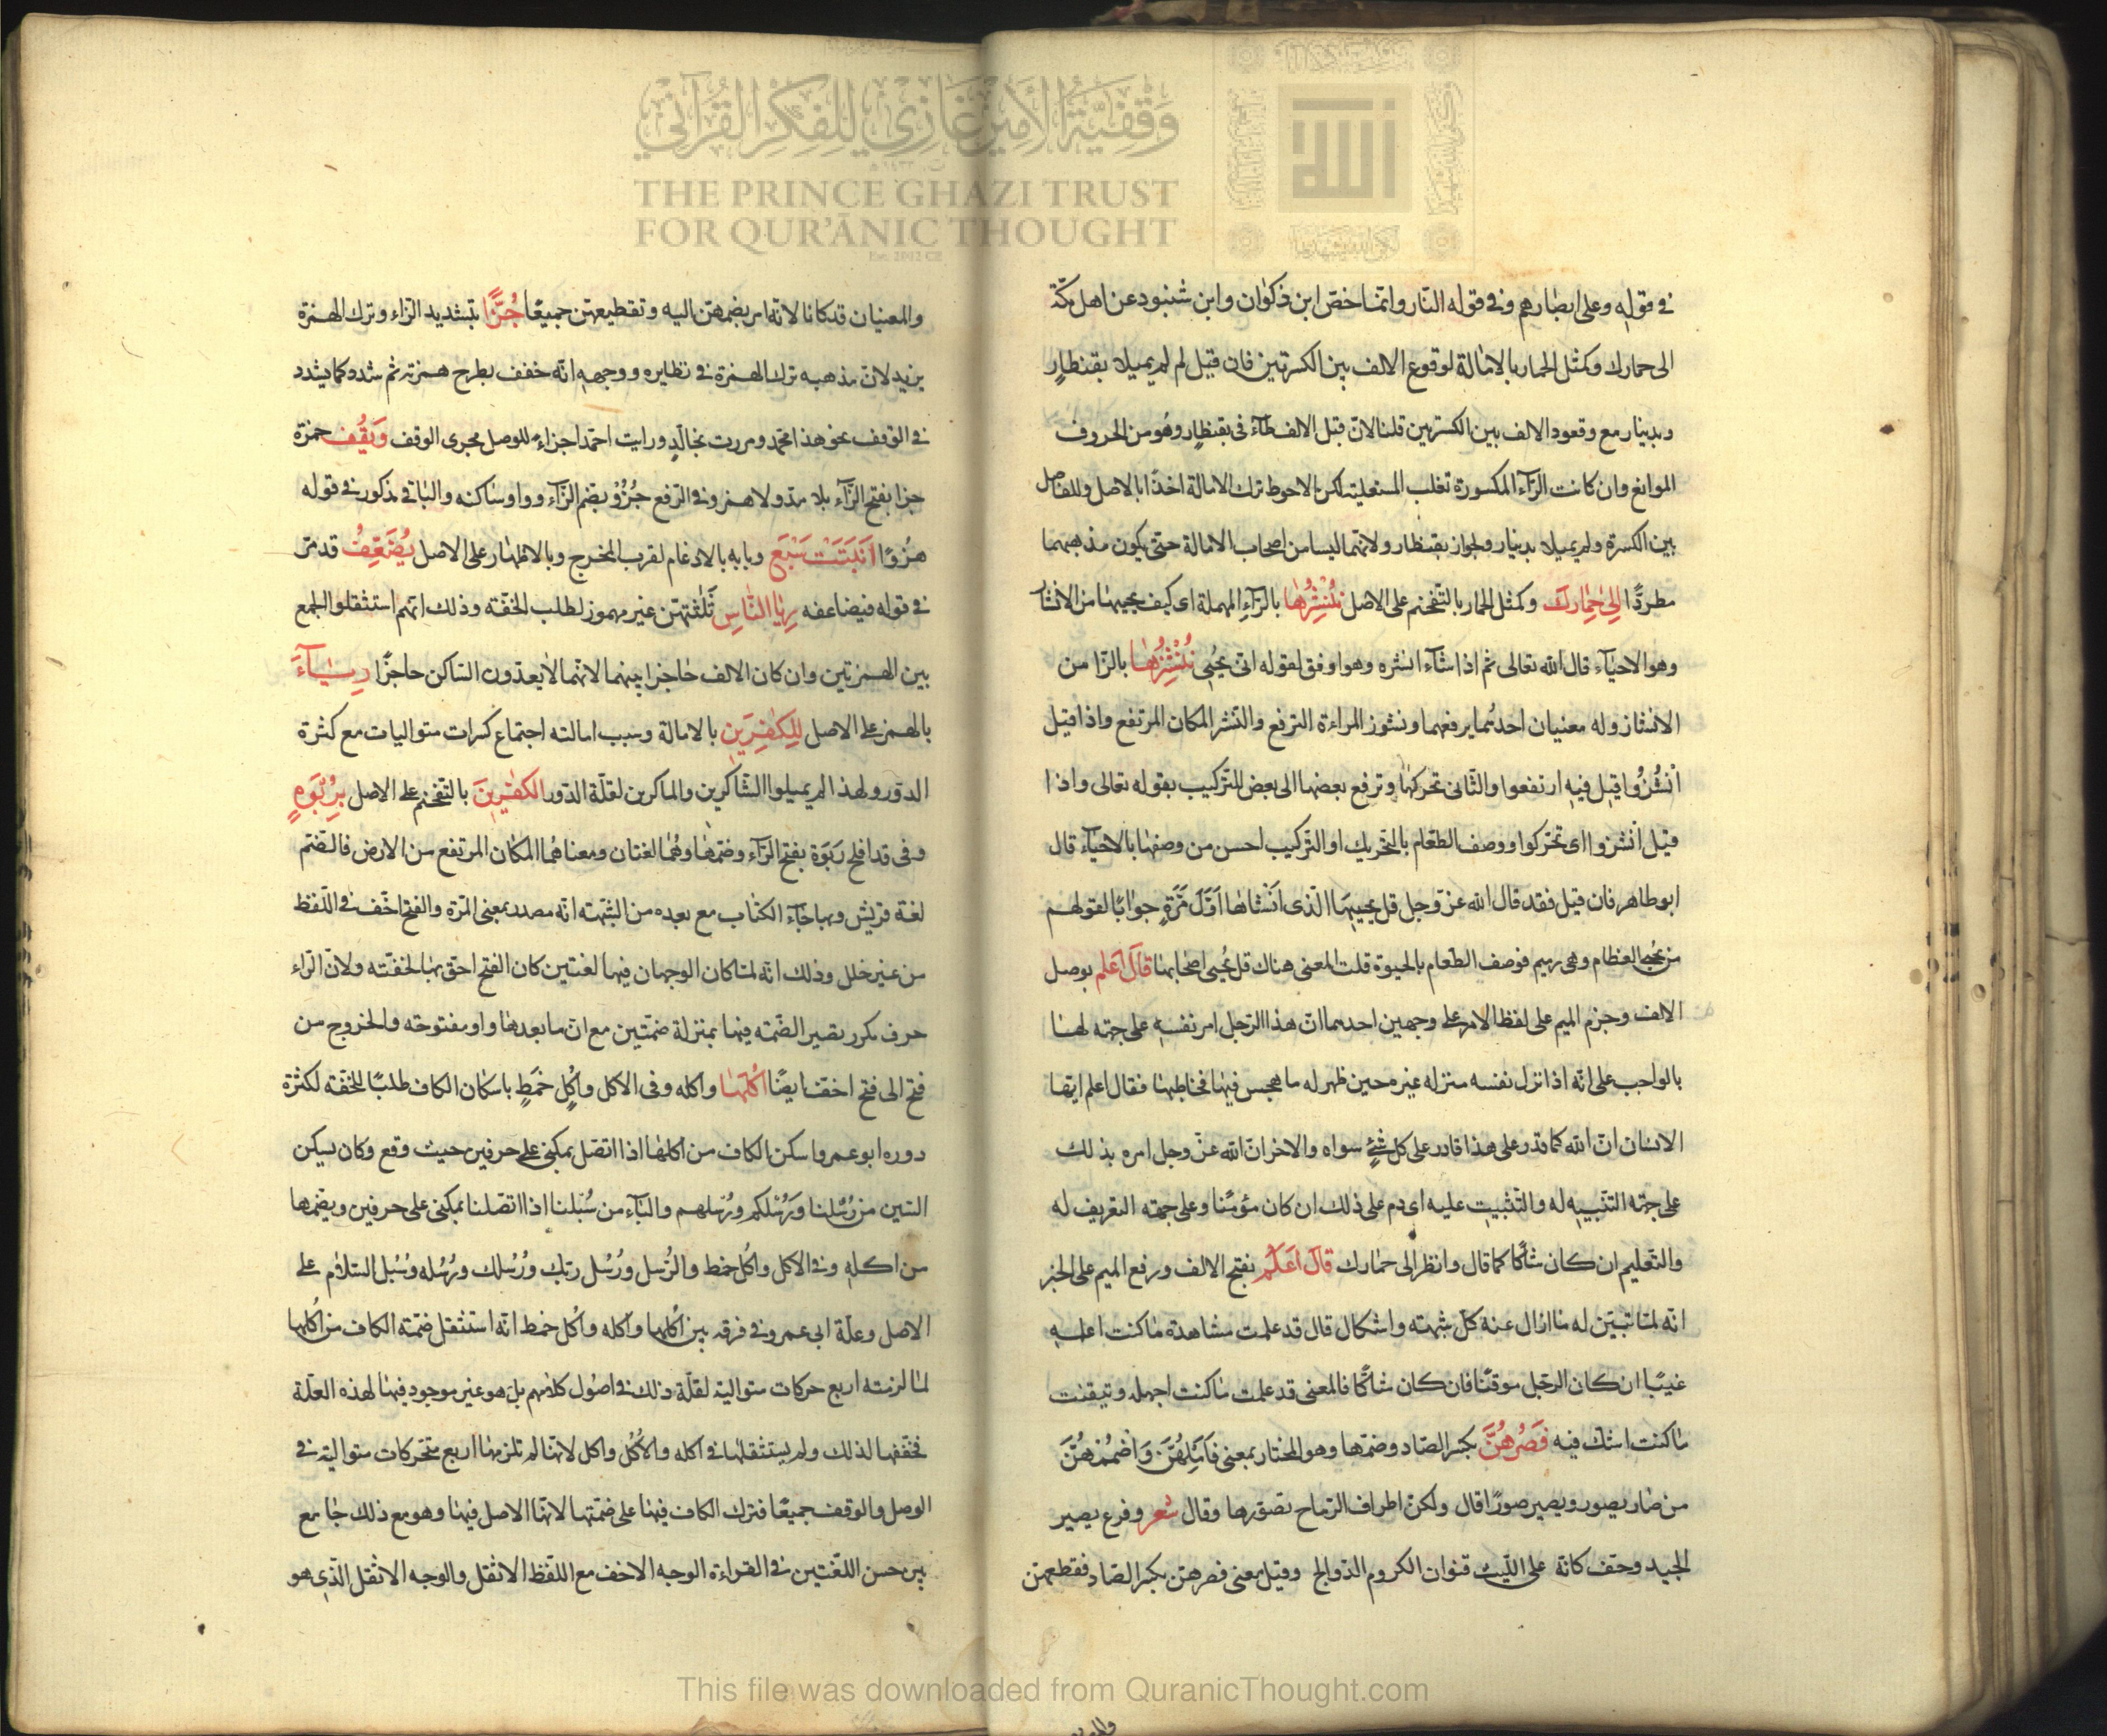 وقفية الأمير غازي للفكر القرآني
THE PRINCE GHAZI TRUST
FOR QUR'ĀNIC THOUGHT
Est. 2012 CE
في قوله وعلى ابصارهم وفي قوله النّار وانّما خصّ ابن ذكوان وابن شنبود عن اهل مكّة
الى حمارك وكمثل الحمار بالامالة لوقوع الالف بين الكسرتين فان قيل لم لم يميلا بقنطار
وبدينار مع وقعود الالف بين الكسرتين قلنا لانّ قبل الالف طآء فى بقنطار وهُو من الحروف
الموانع وان كانت الرّآء المكسورة تغلب المستعلية لكن الاحوط ترك الامالة اخذًا بالاصل وللفاصل
بين الكسرة ولم يميلا بدينار ولجواز بقنطار ولانهما ليسا من اصحاب الامالة حتى يكون مذهبهما
مطردًا اِلىٰ حِمٰارِكَ وكمثل الحمار بالتّفخيم على الاصل نُنْشِرُهٰا بالرّآءِ المهملة اى كيف يحييهٰا من الانشآ
وهو الاحيآء قال الله تعالى ثم اذا شآء انشره وهو اوفق لقوله انى يحُيى نُنْشِزُهٰا بالزّا من
الانشاز وله معنيان احدهما يرفعهما ونشوز المراءة الترفع والنّشز المكان المرتفع واذا قيل
انْشُزُوا قيل فيه ارتفعوا والثّانى تحركها وترفع بعضها الى بعض للتّركيب بقوله تعالى واذا
قيل انْشزوا اى تحرّكوا ووصف الطعّام بالتّحريك او التّركيب احسن من وصفها بالاحيآء قال
ابو طاهر فان قيل فقد قال الله عزّ وجل قل يحييهَا الّذى انَشٰاهٰا اَوّلَ مَرّةٍ جوابًا لقولهم
من يُحيى العظام وهى رميم فوصف الطّعام بالحيوة قلت المعنى هناك قل يُحيى اصحٰابهٰا قالَ اعْلم بوصل
الالف وجزم الميم على لفظ الامر على وجهين احدهما انّ هذا الرّجل امر نفسه على جهة لهٰا
بالواجب على انّه اذا نزل نفسه منزله غير محين ظهر له ما هجس فيهٰا فخاطبهٰا فقال اعلم ايّها
الانسان انّ الله كما قدر على هذا قادر على كل شئٍ سواه والاخر انّ الله عزّ وجل امره بذلك
على جهة التنّبيه له والتّثبيت عليه اى دم على ذلك ان كان مؤمنًا وعلى جهة التعريف له
والتّعليم ان كان شاكًّا كما قال وانظر الى حمارك قالَ اَعْلَمُ بفتح الالف ورفع الميم على الخبر
انّه لمّا تبيّن له مٰا ازال عنه كلّ شبهة واشكال قال قد علمت مشاهدة مٰا كنت اعلمه
غيبًا ان كان الرجّل موقنًا فان كان شاكًّا فالمعنى قد علمت مٰا كنت اجهله وتيقنت
مٰا كنت اشكّ فيه فَصُرْهُنَّ بكسر الصّاد وضمّها وهو المختار بمعنى فَاَمِلْهُنّ وَاضْمُمْهُنَّ
من صٰار يصور ويصير صورًا قال ولكنّ اطراف الرّماح تصوّرها وقال شعر وفرع يصير
الجيد وحتف كانّه على اللّيت قنوان الكروم الدّوالج وقيل معنى فصرهن بكسر الصّاد فقطعهنّ
والمعنيان
والمعنيان قد كانا لانّه امر بضمهنّ اليه وتقطيعهنّ جميعًا جُزًّا بتشديد الزّاء وترك الهمزة
يزيد لانّ مذهبه ترك الهمزة فى نظايره ووجهه انّه خفف بطرح همزته ثم شدد كما يشدد
فى الوقف نحو هذا محمّد ومررت بخالدٍ ورايت احمّد اجزاء للوصل مجرى الوقف وَيَقُف حمزة
جزا بفتح الزّآء بلا مدّ ولا همز وفى الرّفع جُزُوْ بضم الزّآء وواو سٰاكنه والبٰاقى مذكور فى قوله
هزُوًا اَنْبَتَتْ سَبْعَ وبابه بالادغام لقرب المخرج وبالاظهٰار على الاصل يُضَعِّفُ قد مرّ
فى قوله فيضاعفه رِيٰا النّٰاسِ ثَلٰثهنّ غير مهموز لطلب الخفّته وذلك انّهم استثقلوا الجمع
بين الهمزتين وان كان الالف حٰاجزا بينهما لانهّما لا يعدّون السّاكن حاجزًا رِئٰآءَ
بالهمز على الاصل لِلكٰفِرِينَ بالامالة وسبب امالته اجتماع كسرات متواليات مع كثرة
الدّور ولهذا لم يميلوا الشّاكرين والماكرين لقلّة الدّور الكٰفِرينَ بالتّفخيم على الاصل بِرُبْوَةٍ
وفى قد افلح رَبوَة بفتح الرّآء وضمّهٰا وهُمٰا لغتان ومعناهُما المكٰان المرتفع من الارض فالضّم
لغة قريش وبها جٰآء الكتٰاب مع بعده من الشّبهته انّه مصدر بمعنى المرّة والفتح اخّف فى اللّفظ
من غير خلل وذلك انّه لمّا كان الوجهان فيها لغتين كان الفتح احقّ بهٰا لخفّته ولانّ الرّاء
حرف مكرر بصير الضّمته فيها بمنزلة ضمّتين مع انّ مٰا بعدهٰا واو مفتوحته والخروج من
فتح الى فتح اخفّ ايضًا اُكُلَهٰا واكله وفى الاكل واُكٍل خمَطٍ باسكان الكاف طلبًا للخفّة لكثرة
دوره ابو عمرو اسكن الكاف من اكلها اذا اتّصل بمكنى على حرفين حيث وقع وكان يسكن
السّين من رُسُلنا وَرُسُلكم ورُسُلهم والبٰآء من سُبلنا اذا اتصّلنا بمكنى على حرفين ويضّمها
من اكله وفى الاكل واُكُل خمط والرُسل ورُسُل ربّك ورُسُلك ورُسُله وسُبُل السّلام على
الاصل وعلّة ابى عمرو فى فرقه بين اُكُلها واُكله واُكل خمط انّه استثقل ضمّته الكاف من اُكُلها
لمٰا لزمته اربع حركات متوالية لقلّة ذلك فى اصُول كلامهم بل هو غير موجود فيهٰا لهذه العلّة
فخفّفها لذلك ولم يستثقلهٰا فى اكله والاُكُل واكل لانّهٰا لم تلزمهٰا اربع متحّركات متوالية فى
الوصل والوقف جميعًا فترك الكاف فيهٰا على ضمّتها لانّهٰا الاصل فيهٰا وهو مع ذلك جٰامع
بين حسن اللّغتين فى القراءة الوجه الاخف مع اللّفظ الاثقل والوجه الاثقل الّذى هو
This file was downloaded from QuranicThought.com